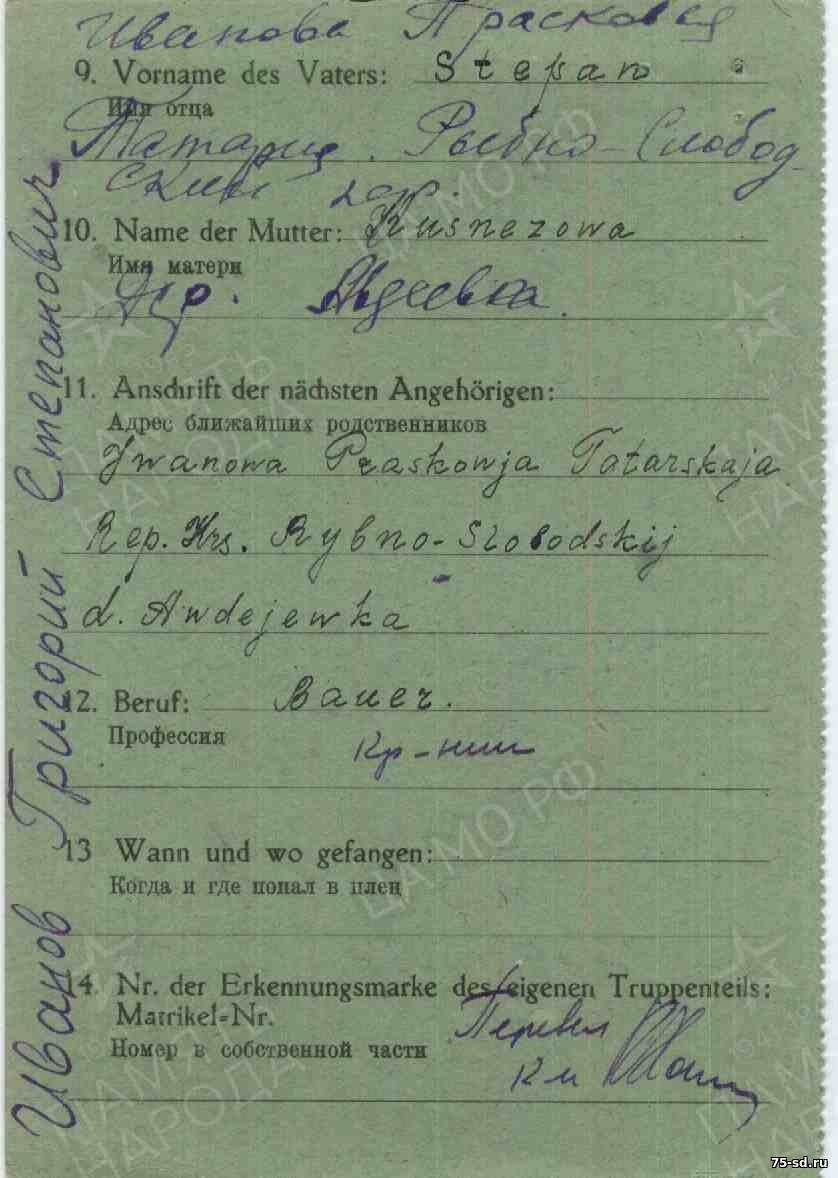 Иванова Прасковья
9. Vorname des Vaters: Stepan
Имя отца
Татария. Рыбно-Слобод-
ский
10. Name der Mutter: Kusnezowa
Имя матери
Дер. Авдеевка.
11. Anschrift der nächsten Angehörigen:
Адрес ближайших родственников
Iwanowa Praskowja Tatarskaja
Rep. Krs. Rybno-Slobodskij
d. Awdejewka
12. Beruf: Bauer.
Профессия
Кр-нин
13 Wann und wo gefangen:
Когда и где попал в плен
14. Nr. der Erkennungsmarke des eigenen Truppenteils:
Matrikel-Nr.
Перевел
Номер в собственной части
Иванов Григорий Степанович
ЦАМО РФ
ПАМЯТЬ
НАРОДА
75-sd.ru